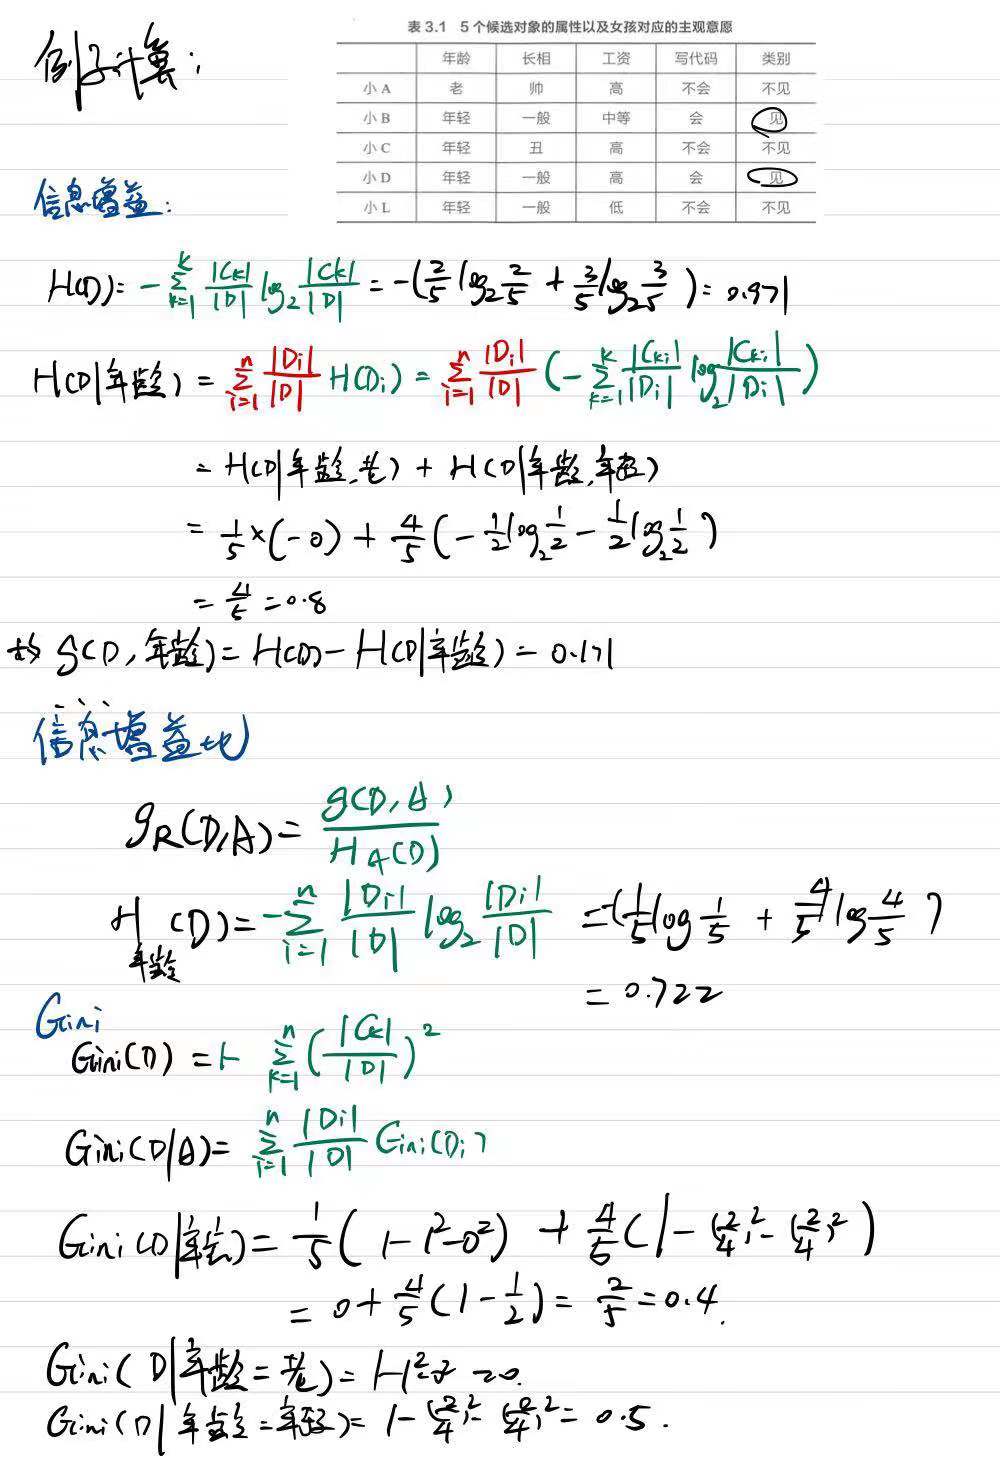 例子计算:
表 3.1 5 个候选对象的属性以及女孩对应的主观意愿
年龄 长相 工资 写代码 类别
小 A 老 帅 高 不会 不见
小 B 年轻 一般 中等 会 见
小 C 年轻 丑 高 不会 不见
小 D 年轻 一般 高 会 见
小 L 年轻 一般 低 不会 不见
信息增益:
H(D)= -∑_{k=1}^{K} |Ck|/|D| log₂ |Ck|/|D| = -(2/5 log₂ 2/5 + 3/5 log₂ 3/5) = 0.971
H(D|年龄) = ∑_{i=1}^{n} |Di|/|D| H(Di) = ∑_{i=1}^{n} |Di|/|D| (-∑_{k=1}^{K} |Cki|/|Di| log₂ |Cki|/|Di|)
= H(D|年龄,老) + H(D|年龄,年轻)
= 1/5 × (-0) + 4/5 (-1/2 log₂ 1/2 - 1/2 log₂ 1/2)
= 4/5 = 0.8
故 g(D,年龄) = H(D) - H(D|年龄) = 0.171
信息增益比
g_R(D,A) = g(D,A) / H_A(D)
H_年龄(D) = -∑_{i=1}^{n} |Di|/|D| log₂ |Di|/|D| = -(1/5 log 1/5 + 4/5 log 4/5)
= 0.722
Gini
Gini(D) = 1- ∑_{k=1}^{n} (|Ck|/|D|)²
Gini(D|A) = ∑_{i=1}^{n} |Di|/|D| Gini(Di)
Gini(D|年龄) = 1/5 (1-1²-0²) + 4/5 (1-(2/4)²-(2/4)²)
= 0 + 4/5 (1-1/2) = 2/5 = 0.4.
Gini(D|年龄=老) = 1-1²-0² = 0.
Gini(D|年龄=年轻) = 1-(2/4)²-(2/4)² = 0.5.